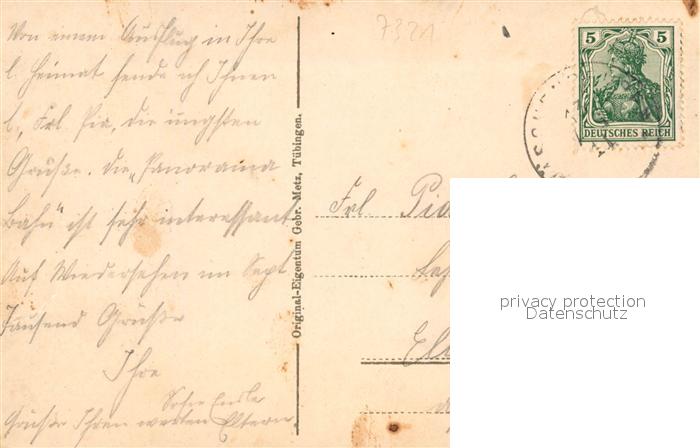 Von einem Ausflug in Ihre
l. Heimat sende ich Ihnen
l. Frl. Pia, die innigsten
Grüße. Die „Panorama
Bahn" ist sehr interessant
Auf Wiedersehen im Sept
Tausend Grüße
Ihre
Sofie
Grüße Ihren werten Eltern.
Original-Eigentum Gebr. Metz, Tübingen.
7321
5 5
DEUTSCHES REICH
Frl. Pia
privacy protection
Datenschutz